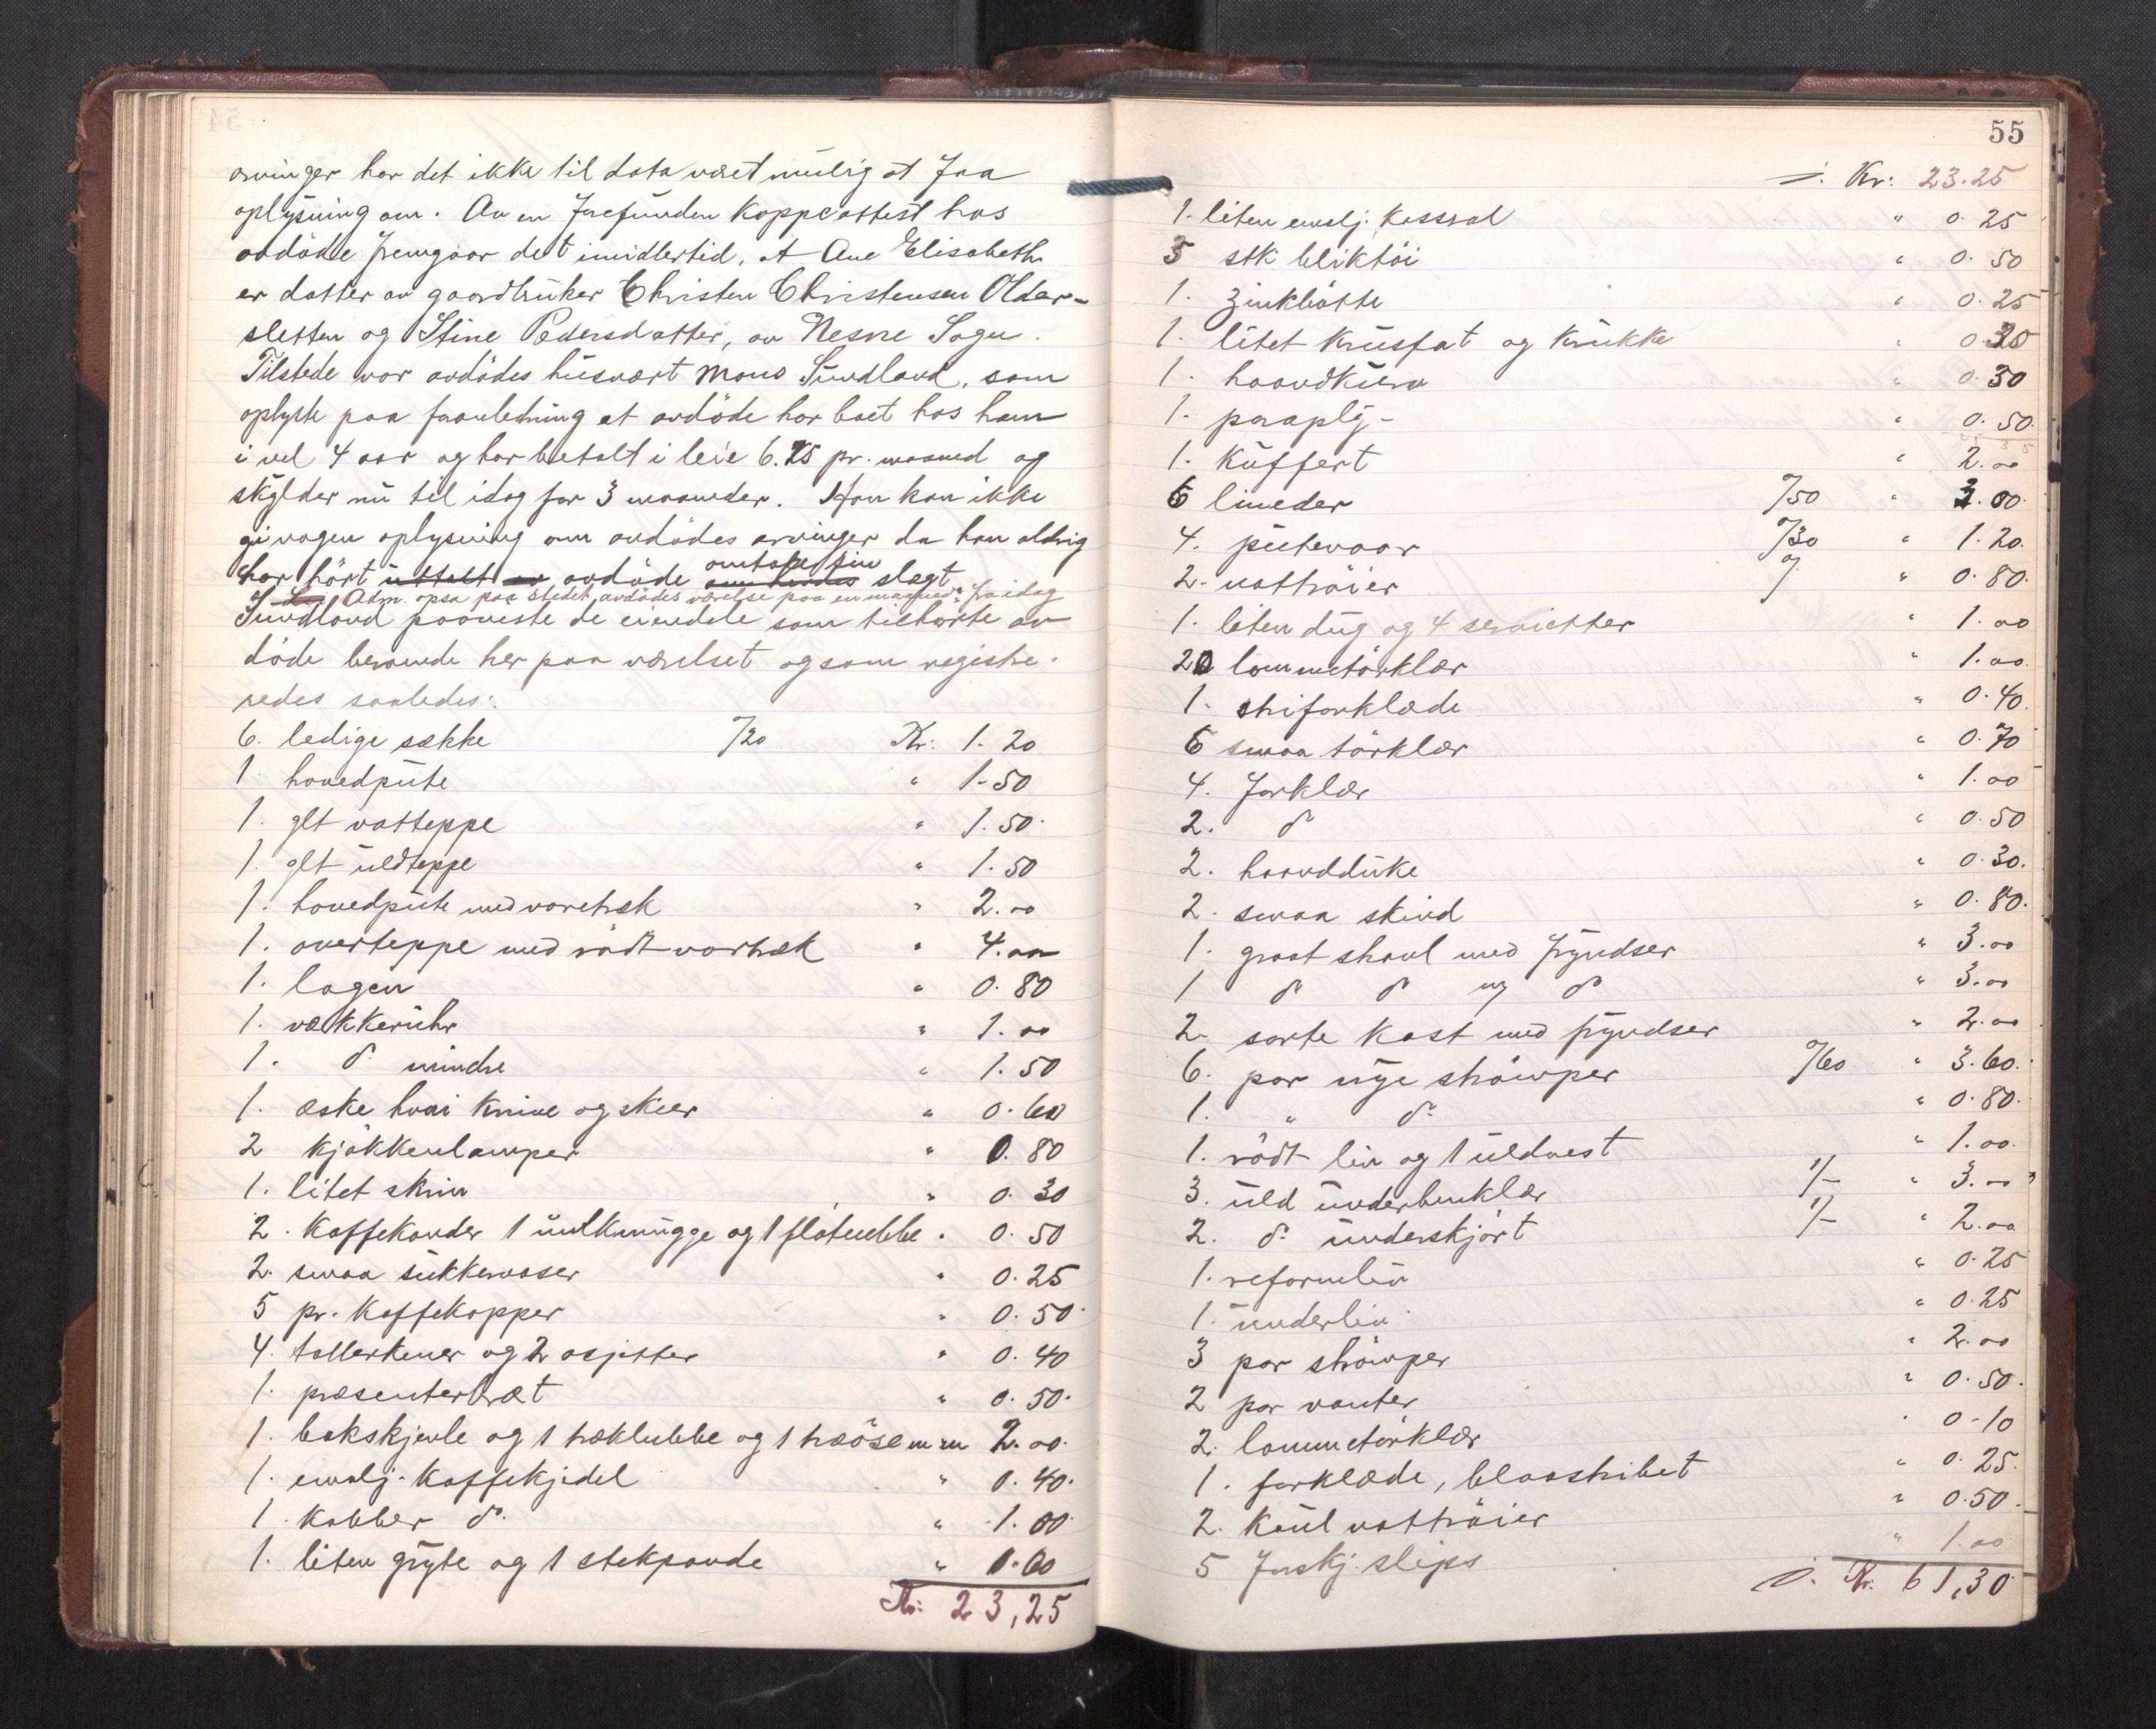 arvinger har det ikke til dato været mulig at faa
oplysning om. Av en forefunden Koppeattest hos
avdöde fremgaar det imidlertid, at Ane Elisabeth
er datter av gaardbruker Christen Christensen Older-
sletten og Stine Pedersdatter, av Nesne Sogn.
Tilstede var avdödes husvært Mons Sundland, som
oplyste paa foranledning at avdöde har boet hos ham
i vel 4 aar og har betalt i leie 6.75 pr. maaned og
skylder nu til idag for 3 maaneder. Han kan ikke
gi nogen oplysning om avdödes arvinger da han aldrig
har hört uttalt av avdöde omtale sin slegt
Adm. opsa paa stedet avdödes værelse paa en maaned fra idag
Sundland paaviste de eiendele som tilhörte av
döde beroende her paa værelset og som registre-
redes saaledes:
6. ledige sække 7/20 Kr: 1.20
1 hovedpute " 1.50
1. glt vatteppe " 1.50
1. glt uldteppe " 1.50
1. hovedpute med varetræk " 2.00
1. overteppe med rödt vartræk " 4.00
1. lagen " 0.80
1. vækkeruhr " 1.00
1. do mindre " 1.50
1. æske hvori knive og skeer " 0.60
2 kjökkenlamper " 0.80
1. litet skrin " 0.30
2. Kaffekander 1 melkmugge og 1 flötekolle " 0.50
2. smaa sukkervaser " 0.25
5 pr. Kaffekopper " 0.50
4. tallerkener og 2 asjetter " 0.40
1. præsenterbræt " 0.50
1. bakskjevle og 1 træklubbe og 1 træöse m m 2.00
1. emalj. Kaffekjedel " 0.40
1. Kobber do. " 1.00
1. liten gryte og 1 stekpande " 0.60
Kr: 23,25
55
Kr: 23.25
1. liten emalj. Kasserol " 0.25
5 stk bliktöi " 0.50
1. Zinkbötte " 0.25
1. litet Krusfat og Krukke " 0.30
1. haandkurv " 0.30
1. paraply - " 0.50
1. Kuffert " 2.00
6 lineder 7/50 " 3.00
4. putevaar 7/30 " 1.20
2. nattröier " 0.80
1. liten dug og 4 servietter " 1.00
20 lommetörklær " 1.00
1. striforklæde " 0.40
6 smaa törklær " 0.70
4. forklær " 1.00
2. do " 0.50
2. haandduke " 0.30
2. smaa skind " 0.80
1. graat shavl med fryndser " 3.00
1 do do og do " 3.00
2. sorte Kast med fryndser " 2.00
6. par nye strömper 7/60 " 3.60
1. " do " 0.80
1. rödt liv og 1 uldvest " 1.00
3. uld underbenklær 1/- " 3.00
2. do underskjört 1/- " 2.00
1. reformliv " 0.25
1. underliv " 0.25
3 par strömper " 2.00
2 par vanter " 0.50
2. lommetörklær " 0.10
1. forklæde, blaastribet " 0.25
2. Kaul nattröier " 0.50
5 forskj. slips " 1.00
Kr. 61,30